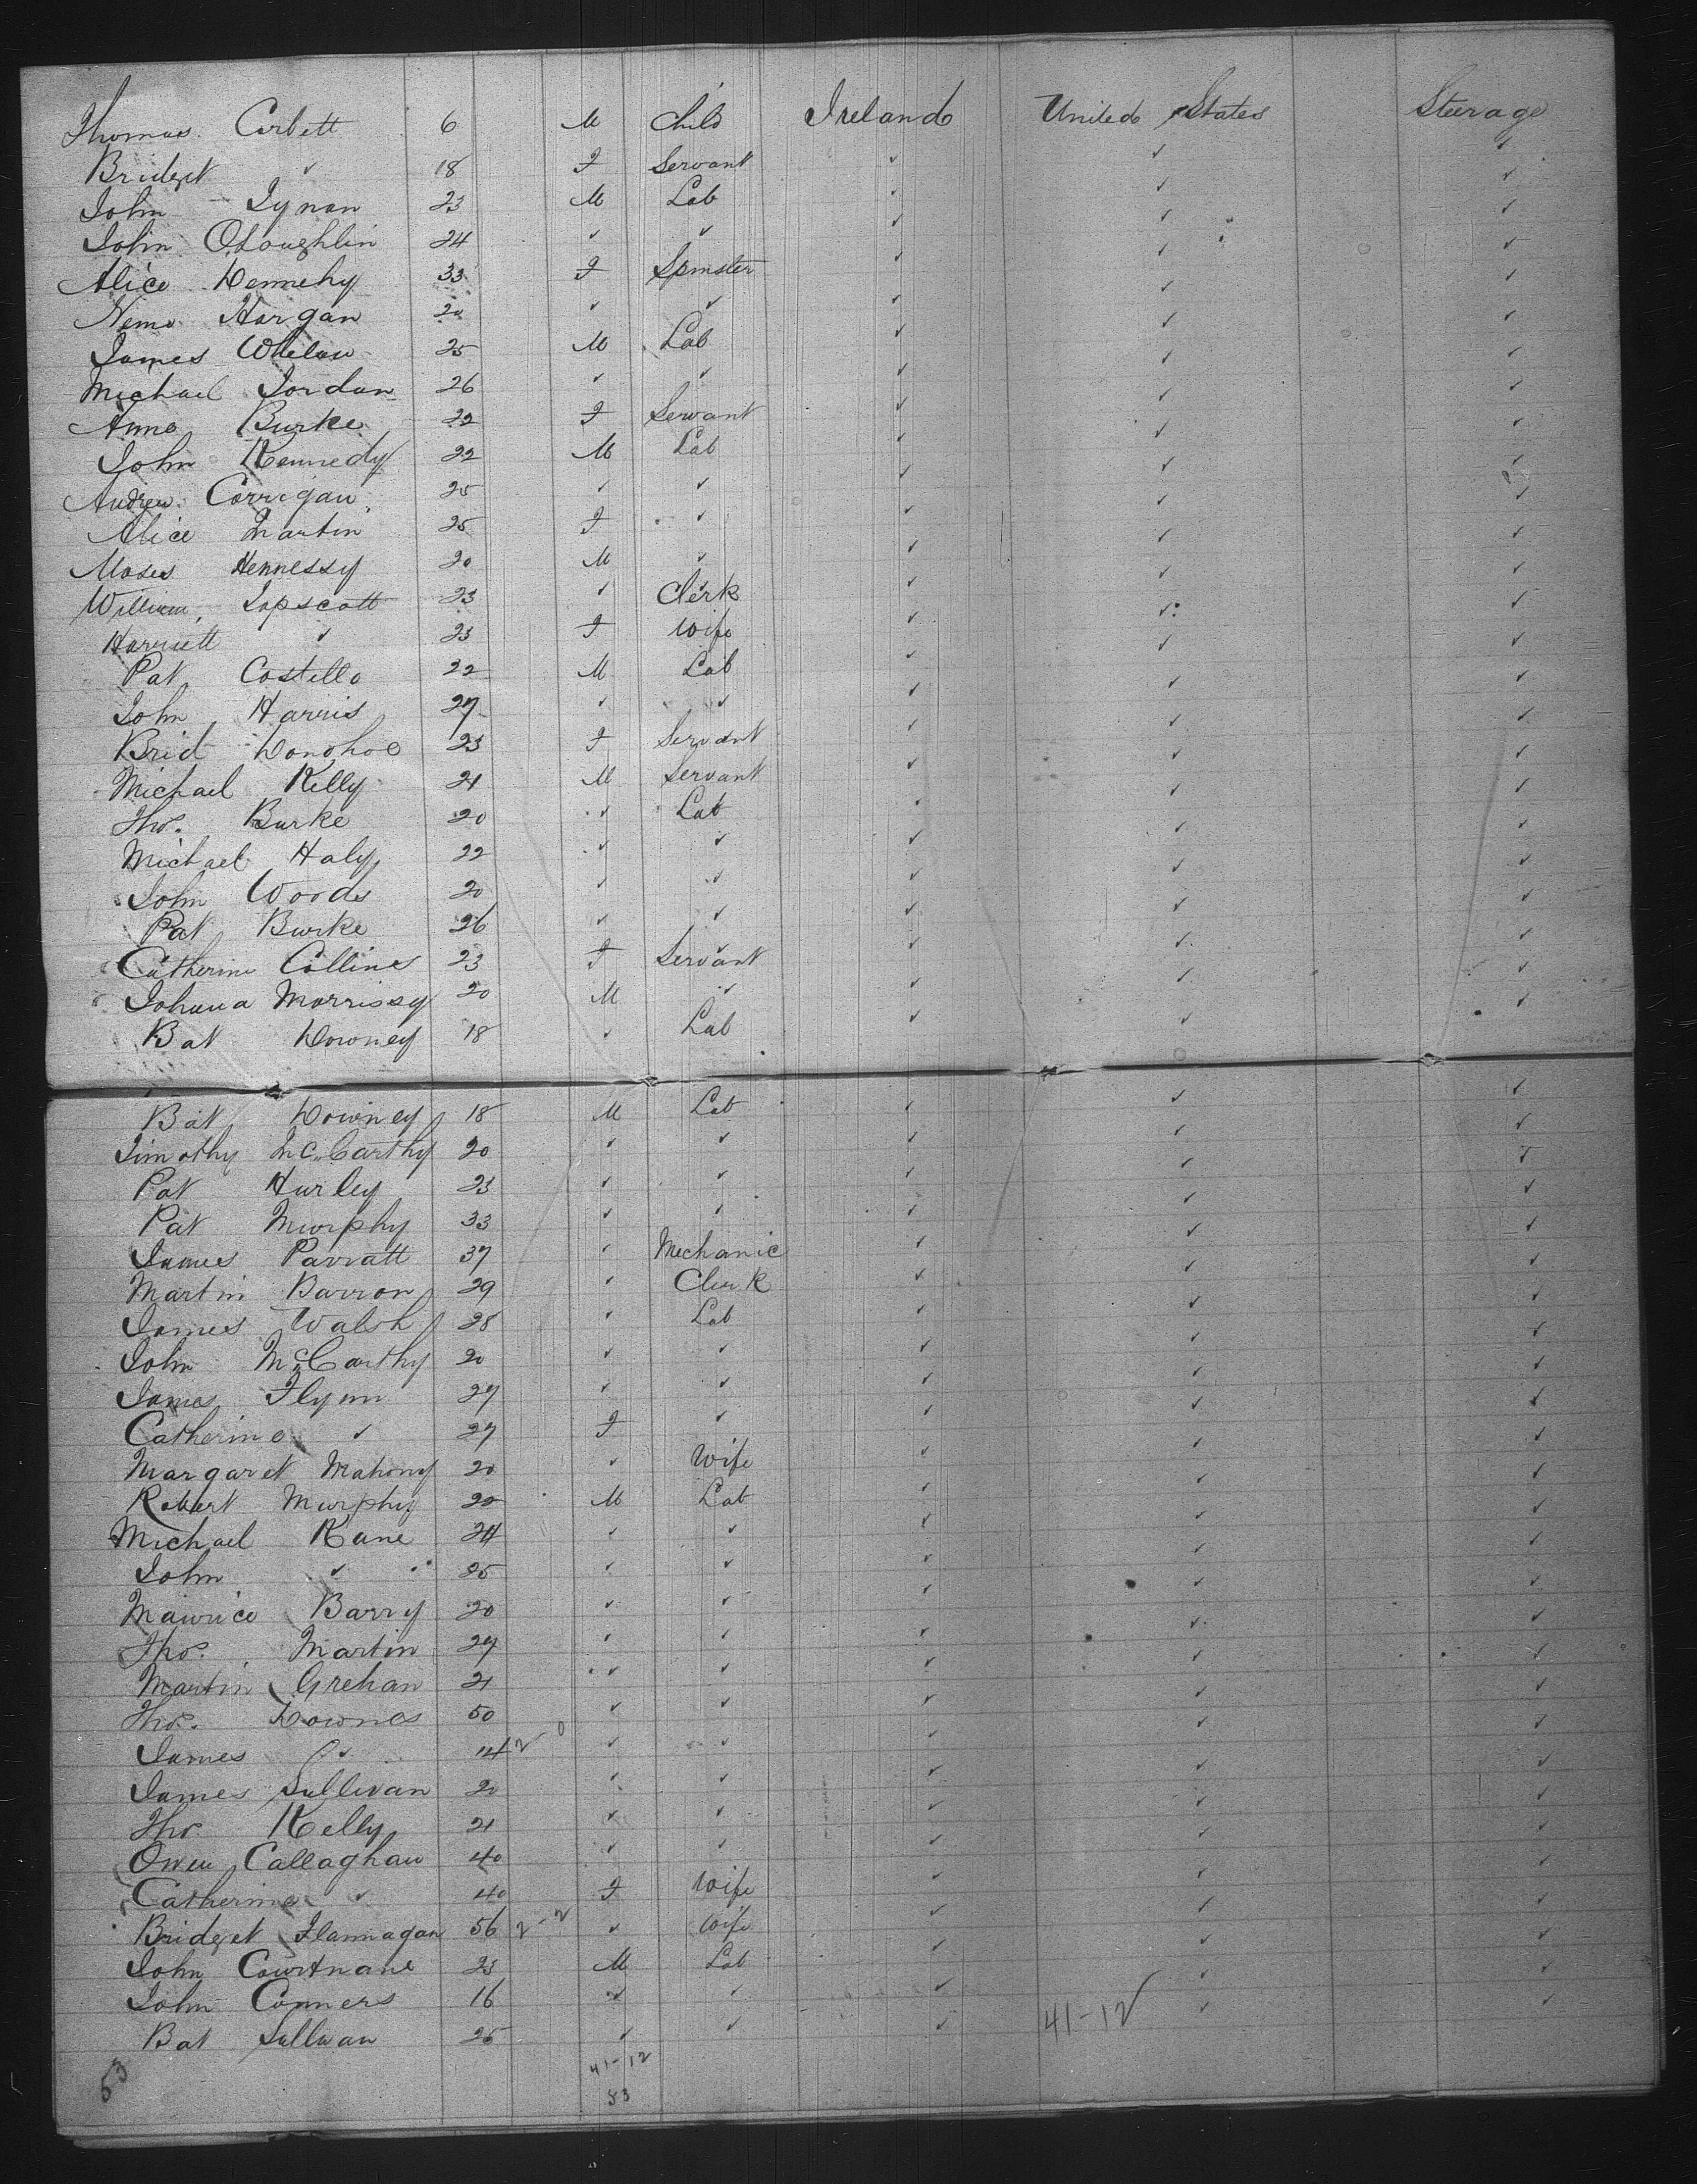 Thomas Corbett 6 M Child Ireland United States Steerage
Bridget ✓ 18 F Servant ✓ ✓ ✓
John Lynon 23 M Lab ✓ ✓ ✓
John O'Loughlin 24 ✓ ✓ ✓ ✓ ✓
Alice Dennehy 33 F Spinster ✓ ✓ ✓
Horgan 20 ✓ ✓ ✓ ✓ ✓
James Whelan 25 M Lab ✓ ✓ ✓
Michael Jordan 26 ✓ ✓ ✓ ✓ ✓
Anne Burke 22 F Servant ✓ ✓ ✓
John Kennedy 22 M Lab ✓ ✓ ✓
Andrew Corrigan 25 ✓ ✓ ✓ ✓ ✓
Alice Martin 25 F ✓ ✓ ✓ ✓
Moses Hennessy 20 M ✓ ✓ ✓ ✓
William Lapscott 23 ✓ Clerk ✓ ✓ ✓
Harriett ✓ 23 F Wife ✓ ✓ ✓
Pat Costello 22 M Lab ✓ ✓ ✓
John Harris 27 ✓ ✓ ✓ ✓ ✓
Brid Donohoe 23 F Servant ✓ ✓ ✓
Michael Kelly 21 M Servant ✓ ✓ ✓
Thos. Burke 20 ✓ Lab ✓ ✓ ✓
Michael Haly 22 ✓ ✓ ✓ ✓ ✓
John Woods 20 ✓ ✓ ✓ ✓ ✓
Pat Burke 26 ✓ ✓ ✓ ✓ ✓
Catherine Collins 23 F Servant ✓ ✓ ✓
Johana Morrissy 20 M ✓ ✓ ✓ ✓
Bat Downey 18 ✓ Lab ✓ ✓ ✓
Bat Downey 18 M Lab ✓ ✓ ✓
Timothy McCarthy 20 ✓ ✓ ✓ ✓ ✓
Pat Hurley 23 ✓ ✓ ✓ ✓ ✓
Pat Murphy 33 ✓ ✓ ✓ ✓ ✓
James Parratt 37 ✓ Mechanic ✓ ✓ ✓
Martin Barron 29 ✓ Clerk ✓ ✓ ✓
James Walsh 28 ✓ Lab ✓ ✓ ✓
John McCarthy 20 ✓ ✓ ✓ ✓ ✓
James Flynn 27 ✓ ✓ ✓ ✓ ✓
Catherine ✓ 27 F ✓ ✓ ✓ ✓
Margaret Mahony 20 ✓ Wife ✓ ✓ ✓
Robert Murphy 22 M Lab ✓ ✓ ✓
Michael Kane 24 ✓ ✓ ✓ ✓ ✓
John ✓ 25 ✓ ✓ ✓ ✓ ✓
Maurice Barry 20 ✓ ✓ ✓ ✓ ✓
Thos. Martin 27 ✓ ✓ ✓ ✓ ✓
Martin Grehan 21 ✓ ✓ ✓ ✓ ✓
Thos. Downes 50 ✓ ✓ ✓ ✓ ✓
James ✓ 14 2-0 ✓ ✓ ✓ ✓ ✓
James Sullivan 20 ✓ ✓ ✓ ✓ ✓
Tho. Kelly 21 ✓ ✓ ✓ ✓ ✓
Owen Callaghan 40 ✓ ✓ ✓ ✓ ✓
Catherine ✓ 40 F Wife ✓ ✓ ✓
Bridget Flannagan 56 2-2 ✓ Wife ✓ ✓ ✓
John Courtnane 23 M Lab ✓ ✓ ✓
John Conners 16 ✓ ✓ ✓ ✓ ✓
Bat Sullivan 25 ✓ ✓ ✓ 41-12 ✓ ✓
53 41-12
53